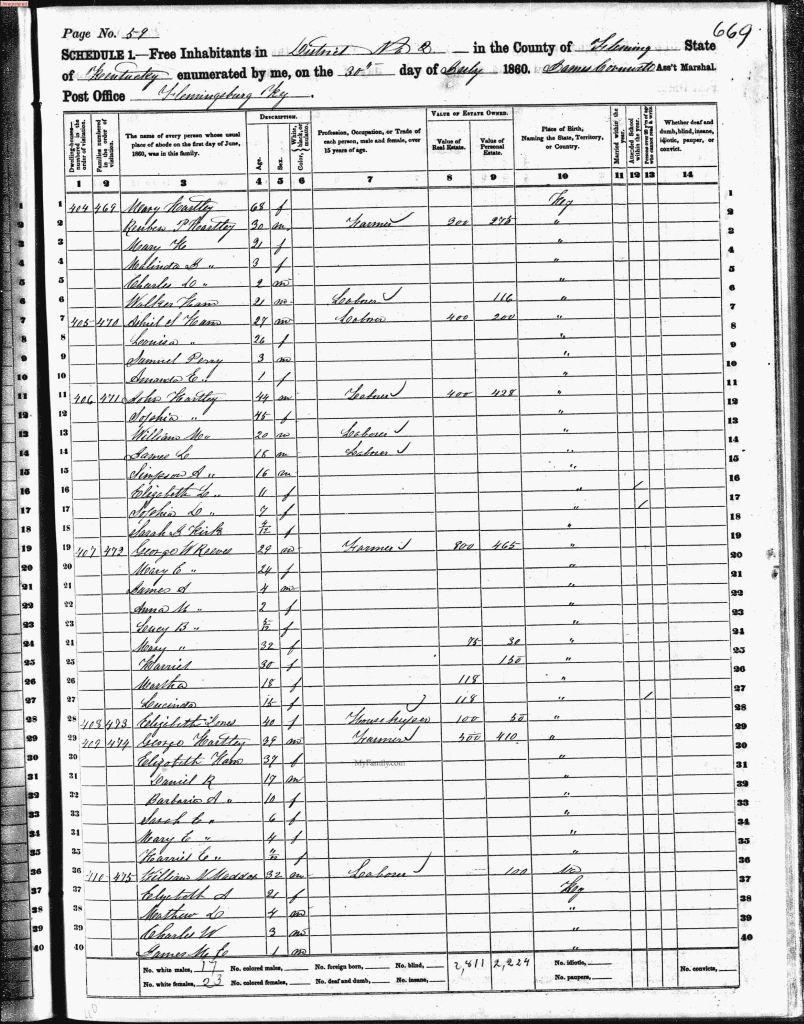 Page No. 52
669
SCHEDULE 1.—Free Inhabitants in District No 2 in the County of Fleming State
of Kentucky enumerated by me, on the 30th day of July 1860. James Ass't Marshal.
Post Office Flemingsburg Ky
Dwelling-houses—numbered in the order of visitation.
Families numbered in the order of visitation.
The name of every person whose usual place of abode on the first day of June, 1860, was in this family.
DESCRIPTION.
Age.
Sex.
Color, White, black, or mulatto.
Profession, Occupation, or Trade of each person, male and female, over 15 years of age.
VALUE OF ESTATE OWNED.
Value of Real Estate.
Value of Personal Estate.
Place of Birth, Naming the State, Territory, or Country.
Married within the year.
Attended School within the year.
Persons over 20 y'rs of age who cannot read & write.
Whether deaf and dumb, blind, insane, idiotic, pauper, or convict.
1 2 3 4 5 6 7 8 9 10 11 12 13 14
1 404 469 Mary Hartley 68 f Ky 1
2 Reuben P Hartley 30 m Farmer 300 275 " 2
3 Mary H 21 f " 3
4 Malinda " 3 f " 4
5 Charles L " 2 m " 5
6 Walker Ham 21 m Laborer 116 " 6
7 405 470 Ham 27 m Laborer 400 200 " 7
8 Louisa " 26 f " 8
9 Samuel Perry 3 m " 9
10 Amanda E " 1 f " 10
11 406 471 John Hartley 44 m 400 428 " 11
12 Sophia " 45 f " 12
13 William M " 20 m Laborer " 13
14 James L 18 m Laborer " 14
15 Simpson A " 16 m " 15
16 Elizabeth L " 11 f " / 16
17 Sophia L " 7 f " / 17
18 Sarah Kirk f " 18
19 407 472 George W Reeves 29 m Farmer 800 465 " 19
20 Mary E " 24 f " 20
21 James A 4 m " 21
22 Anna M " 2 f " 22
23 Lucy B " f " 23
24 Mary " 32 f 75 30 " 24
25 Harriet 30 f 150 " 25
26 Martha 18 f 118 " 26
27 Lucinda 15 f 118 " / 27
28 408 473 Elizabeth Jones 40 f Housekeeper 100 50 " 28
29 409 474 George Hartley 39 m Farmer 500 410 " 29
30 Elizabeth Ham 37 f " 30
31 Daniel R 17 m " 31
32 Barbara A " 10 f " 32
33 Sarah C " 6 f " 33
34 Mary E " 4 f " 34
35 Harriet E " f " 35
36 410 475 William Maddox 32 m Laborer 100 Va 36
37 Elizabeth A 21 f Ky 37
38 Mathew L 4 m " 38
39 Charles W 3 m " 39
40 James M E 1 m " 40
MyFamily.com
No. white males, 17 No. colored males, No. foreign born, No. blind, 2,811 2,224 No. idiotic, No. convicts,
No. white females, 23 No. colored females, No. deaf and dumb, No. insane, No. paupers,